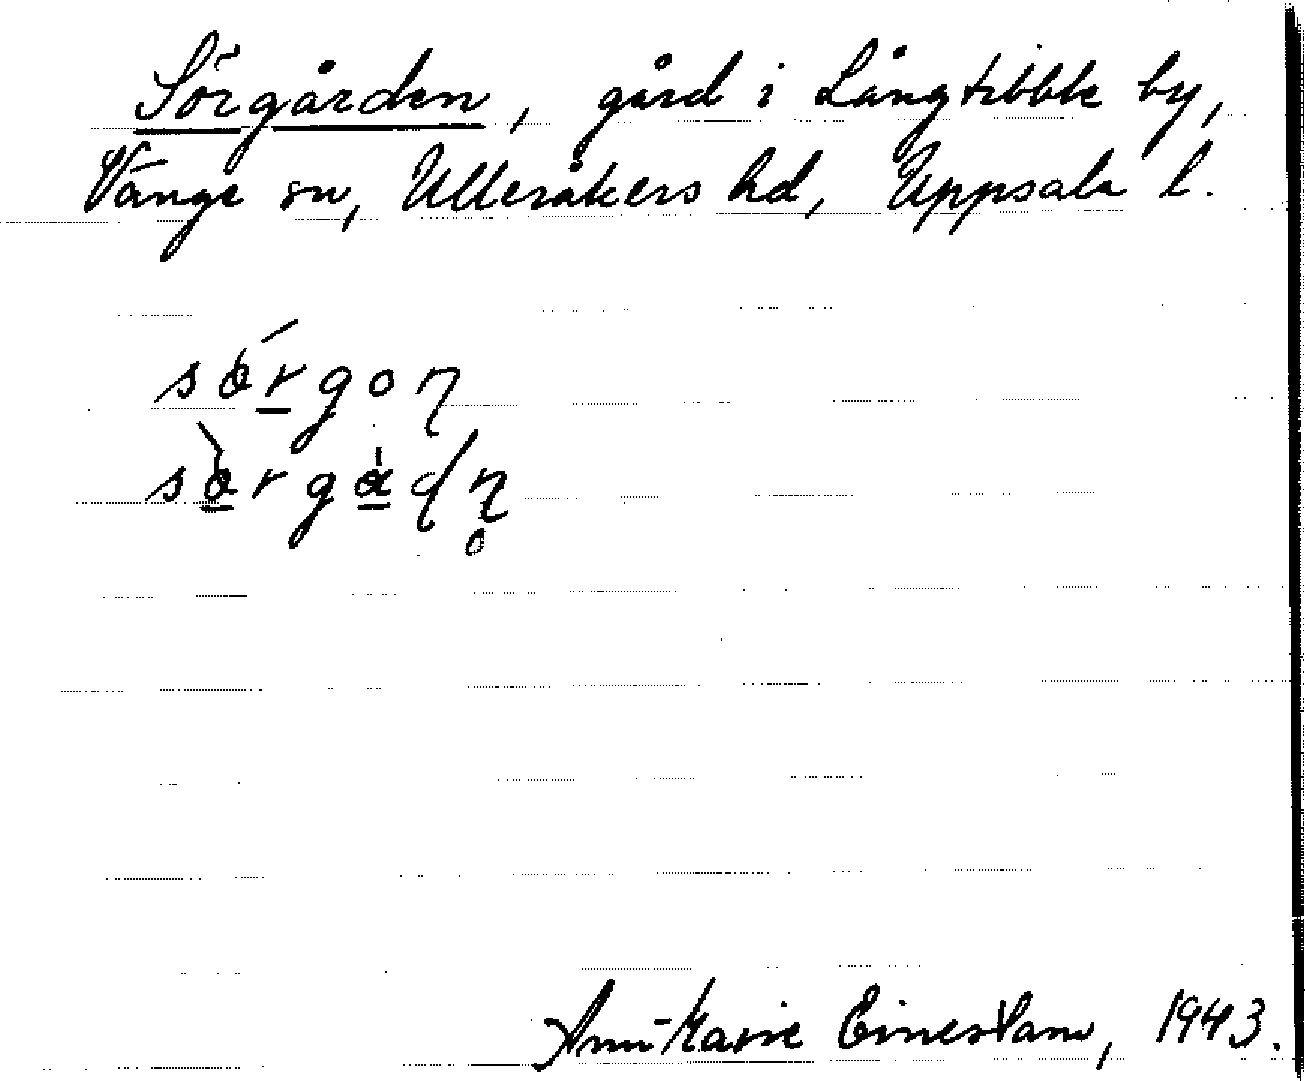 Sörgården, gård i Långtibble by,
Vänge sn, Ulleråkers hd, Uppsala l.
Ann-Marie Einestam, 1943.